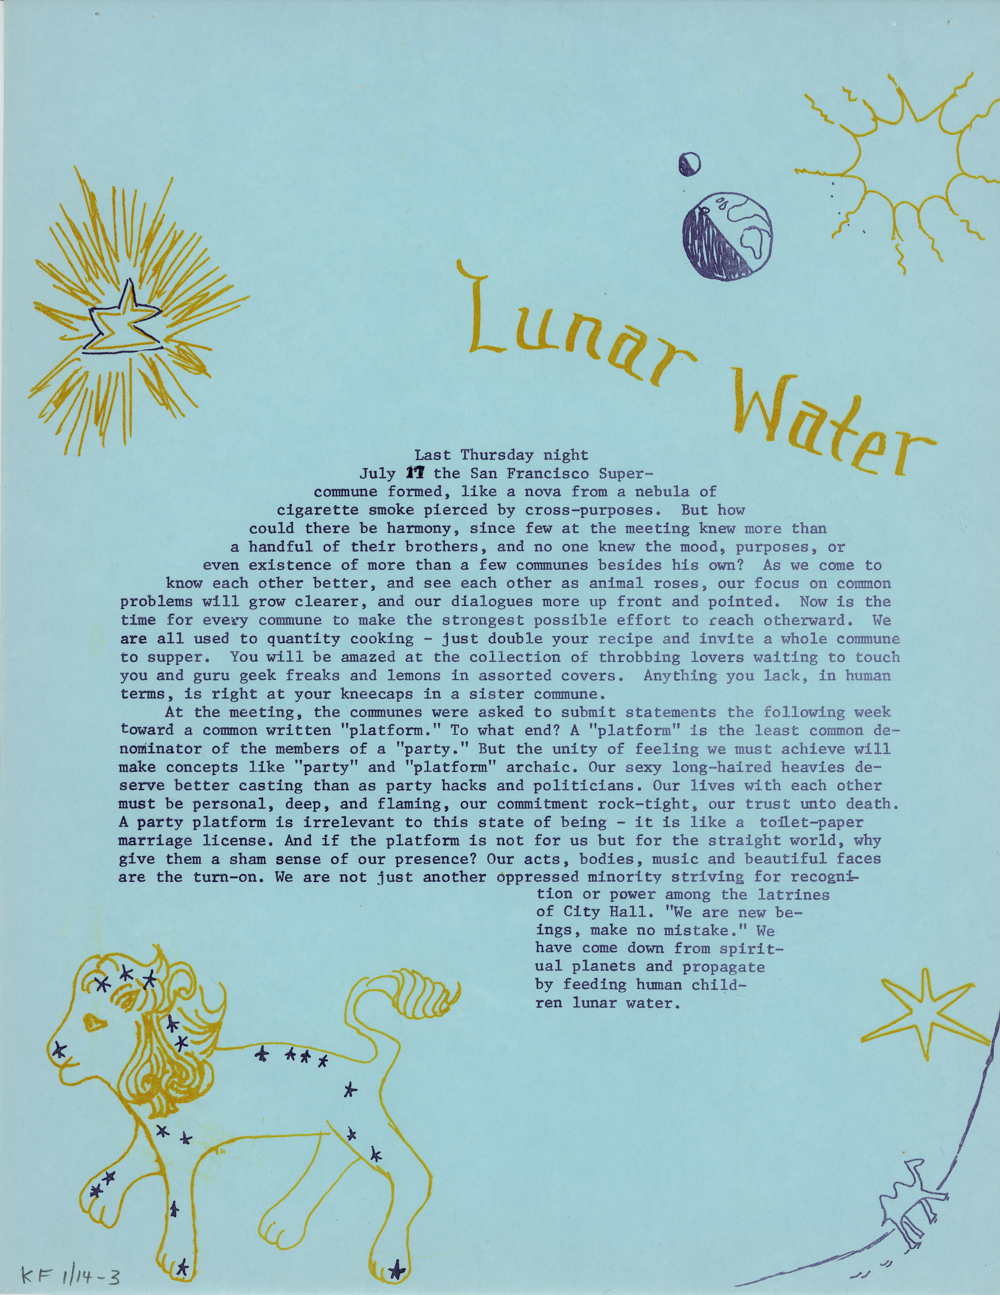 Lunar Water
Last Thursday night
July 17 the San Francisco Super-
commune formed, like a nova from a nebula of
cigarette smoke pierced by cross-purposes.  But how
could there be harmony, since few at the meeting knew more than
a handful of their brothers, and no one knew the mood, purposes, or
even existence of more than a few communes besides his own?  As we come to
know each other better, and see each other as animal roses, our focus on common
problems will grow clearer, and our dialogues more up front and pointed.  Now is the
time for every commune to make the strongest possible effort to reach otherward.  We
are all used to quantity cooking - just double your recipe and invite a whole commune
to supper.  You will be amazed at the collection of throbbing lovers waiting to touch
you and guru geek freaks and lemons in assorted covers.  Anything you lack, in human
terms, is right at your kneecaps in a sister commune.
At the meeting, the communes were asked to submit statements the following week
toward a common written "platform." To what end? A "platform" is the least common de-
nominator of the members of a "party." But the unity of feeling we must achieve will
make concepts like "party" and "platform" archaic. Our sexy long-haired heavies de-
serve better casting than as party hacks and politicians. Our lives with each other
must be personal, deep, and flaming, our commitment rock-tight, our trust unto death.
A party platform is irrelevant to this state of being - it is like a toilet-paper
marriage license. And if the platform is not for us but for the straight world, why
give them a sham sense of our presence? Our acts, bodies, music and beautiful faces
are the turn-on. We are not just another oppressed minority striving for recogni-
tion or power among the latrines
of City Hall. "We are new be-
ings, make no mistake." We
have come down from spirit-
ual planets and propagate
by feeding human child-
ren lunar water.
KF 1/14-3